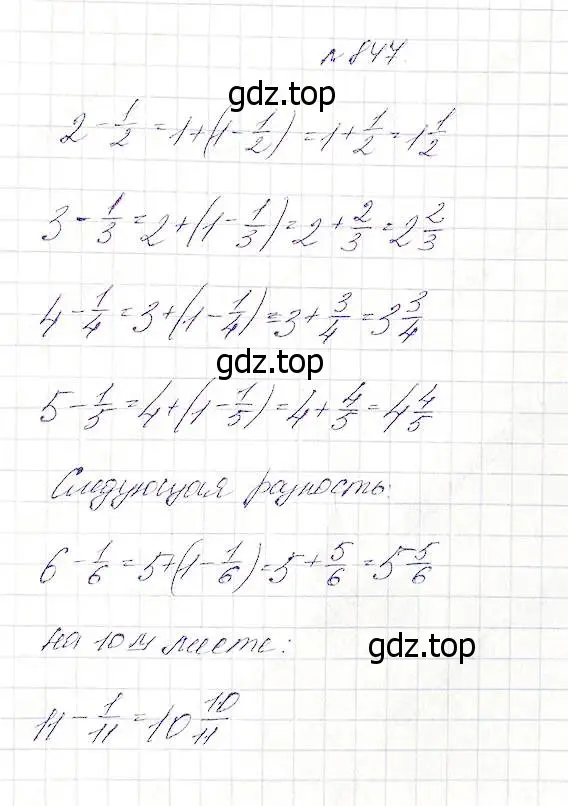 № 847.
gdz.top
2 - 1/2 = 1 + (1 - 1/2) = 1 + 1/2 = 1 1/2
3 - 1/3 = 2 + (1 - 1/3) = 2 + 2/3 = 2 2/3
4 - 1/4 = 3 + (1 - 1/4) = 3 + 3/4 = 3 3/4
gdz.top
5 - 1/5 = 4 + (1 - 1/5) = 4 + 4/5 = 4 4/5
Следующая разность:
6 - 1/6 = 5 + (1 - 1/6) = 5 + 5/6 = 5 5/6
на 10м месте:
gdz.top
11 - 1/11 = 10 10/11